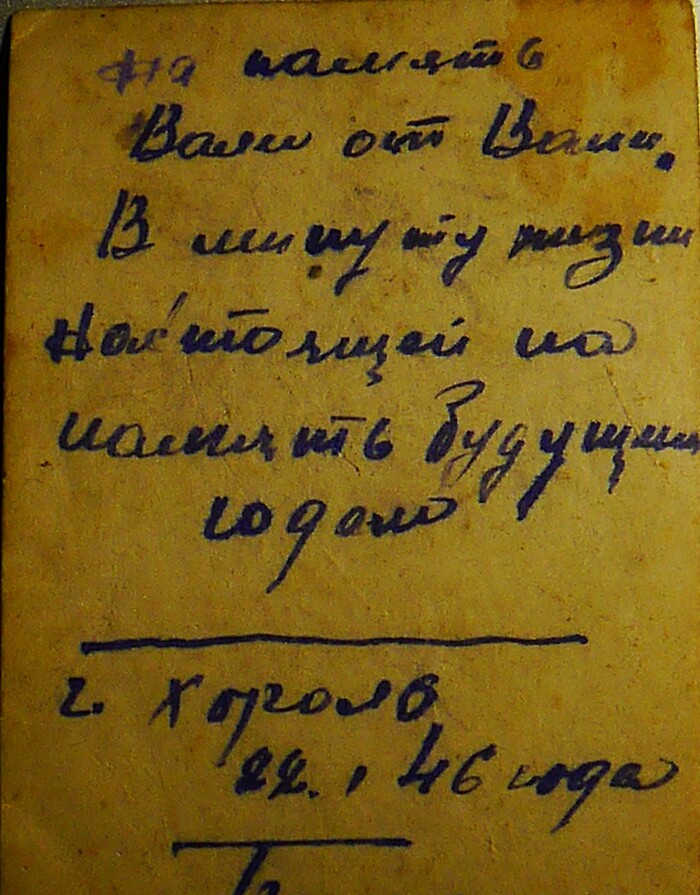 На память
Вали от Вали.
В минуту жизни
Настоящей на
память будущим
годам
г. Хорол
22. 1 46 года